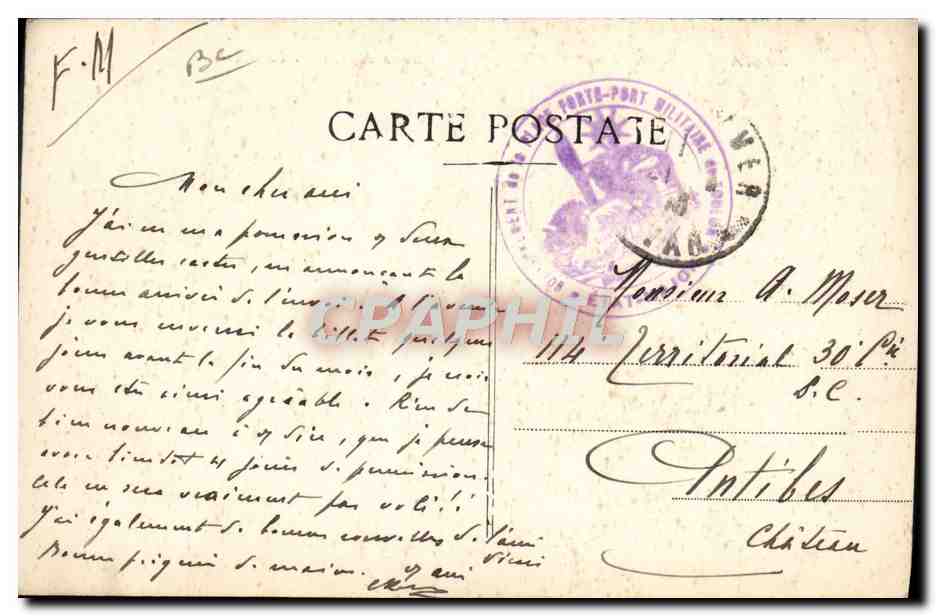 F.M
Bc
CARTE POSTALE
PORTE-PORT MILITAIRE
MER
VAR
Mon cher ami
J'ai en ma possession vos deux
gentilles cartes, m'annonçant la
bonne arrivée de l'envoi. à l'avenir
je vous enverrai le billet quelques
jours avant la fin du mois, je crois
vous être ainsi agréable. Rien de
bien nouveau à vs dire, que je pense
avoir bientôt 4 jours de permission.
Cela ne sera vraiment pas volé!!
J'ai également de bonnes nouvelles de l'ami
Bonne poignée de main. vs ami
Monsieur A. Moser
114 Territorial 30e Cie
S.C.
Antibes
Château
CPAPHIL